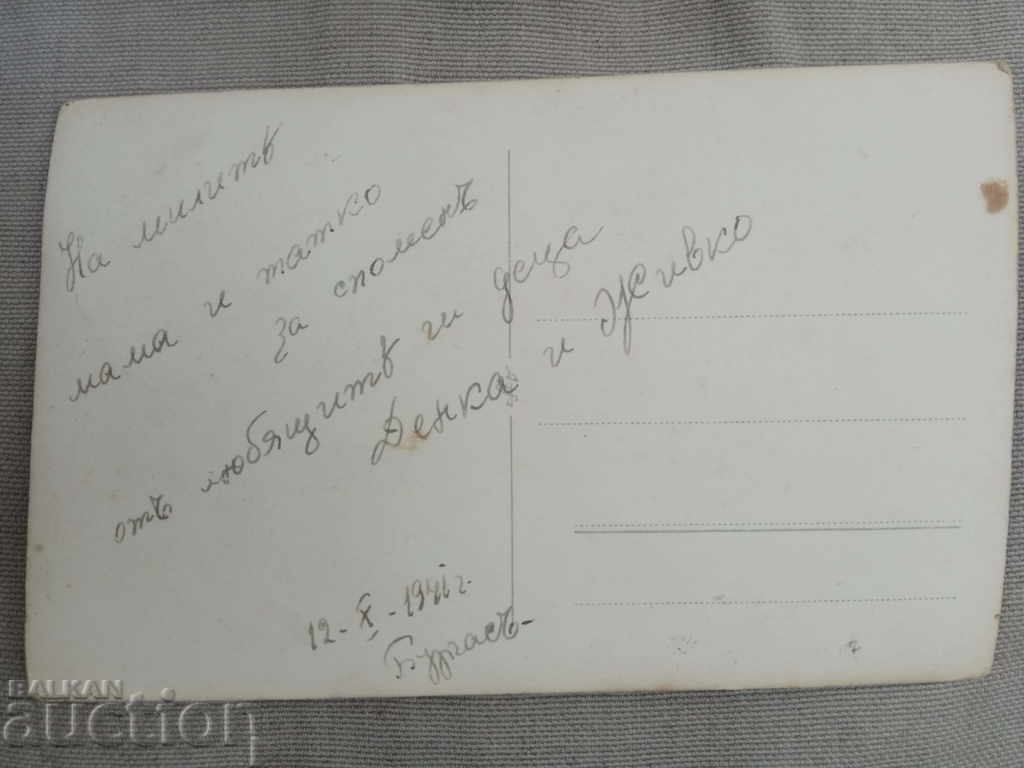 На милитѣ
мама и татко
за споменъ
отъ любящитѣ ги деца
Денка и Живко
12-X-1941 г.
Бургасъ-
BALKAN
auction